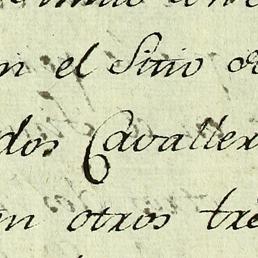 n el Sitio d
dos Cavaller
n otros tre